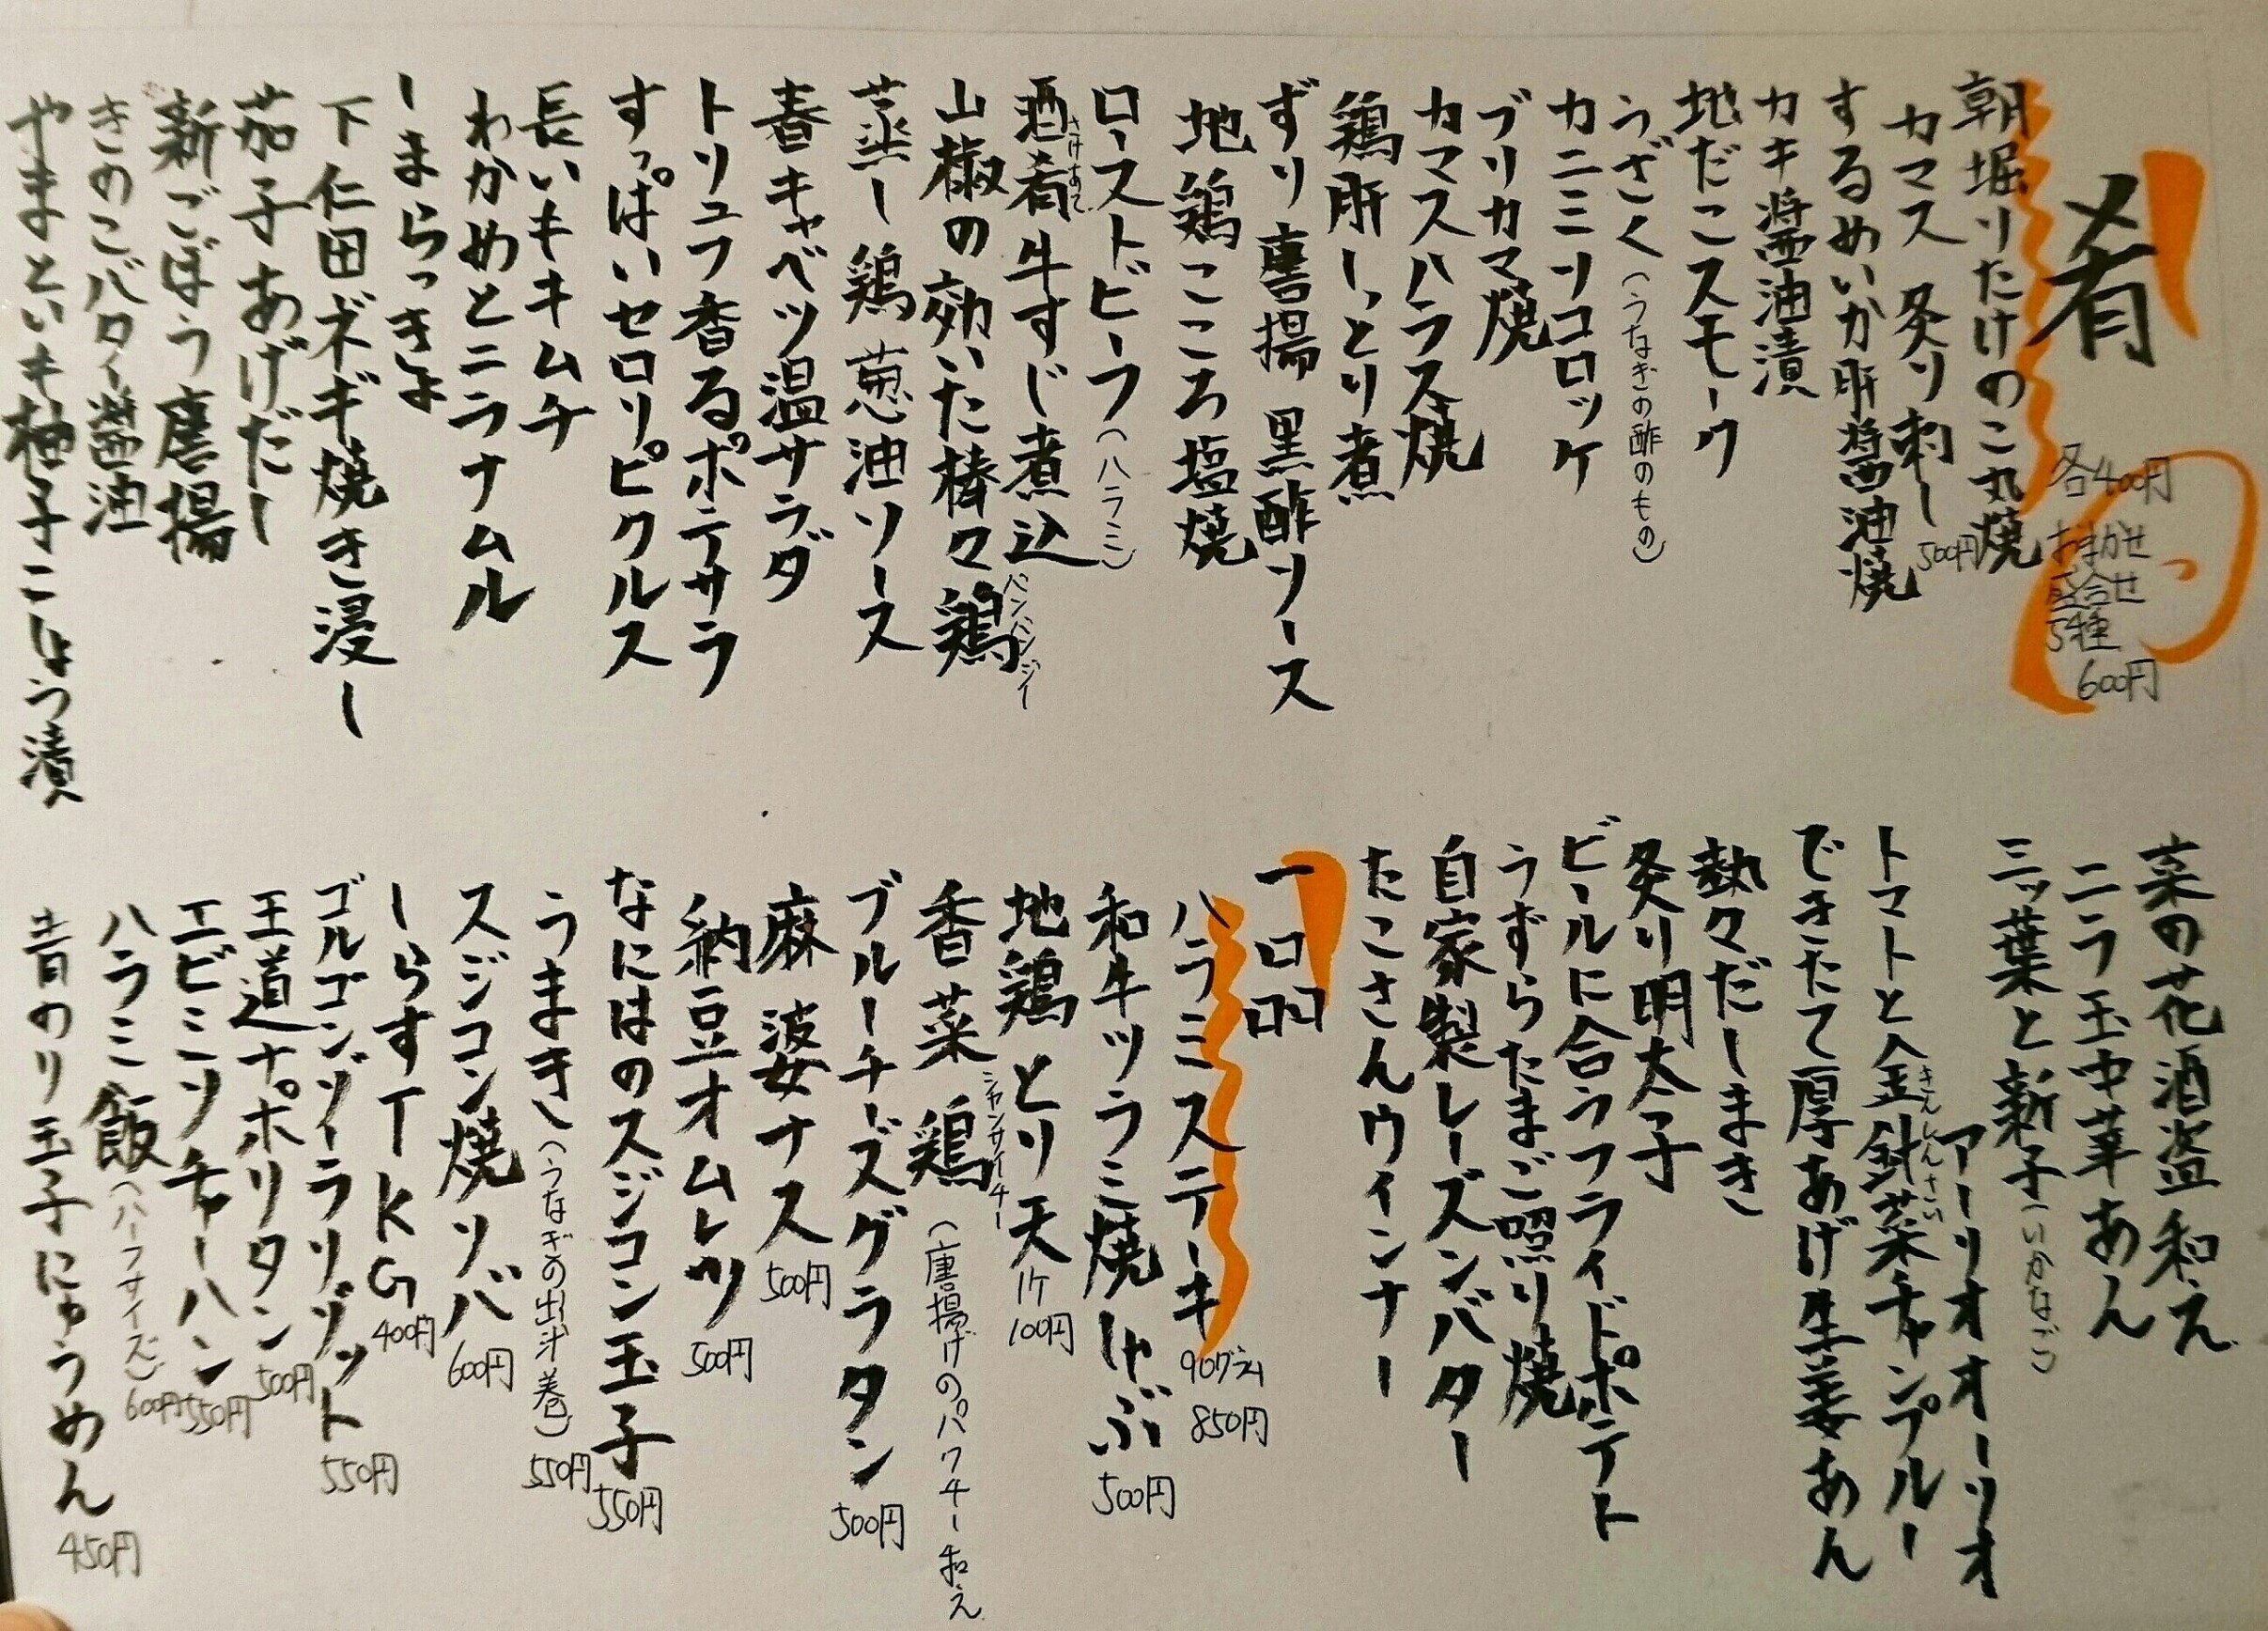 肴
各400円
おまかせ
盛合せ
5種
600円
朝堀りたけのこ丸焼
カマス炙り刺し 500円
するめいか肝醤油焼
カキ醤油漬
地だこスモーク
うざく(うなぎの酢のもの)
カニミソコロッケ
ブリカマ焼
カマスハラス焼
鶏肝しっとり煮
ずり唐揚 黒酢ソース
地鶏こころ塩焼
ローストビーフ(ハラミ)
酒肴牛すじ煮込
山椒の効いた棒々鶏
バンバンジー
蒸し鶏 葱油ソース
春キャベツ温サラダ
トリュフ香るポテサラ
すっぱいセロリピクルス
長いもキムチ
わかめとニラナムル
しまらっきょ
下仁田ネギ焼き浸し
茄子あげだし
新ごぼう唐揚
きのこバター醤油
やまといも柚子こしょう漬
菜の花酒盗和え
ニラ玉中華あん
三ッ葉と新子(いかなご)
アーリオオーリオ
トマトと金針菜チャンプルー
きんしんさい
できたて厚あげ生姜あん
熱々だしまき
炙り明太子
ビールに合うフライドポテト
うずらたまご照り焼
自家製レーズンバター
たこさんウインナー
一口品
ハラミステーキ 90グラム 850円
和牛ツラミ焼しゃぶ 500円
地鶏とり天 1ケ 100円
香菜鶏(唐揚げのパクチー和え)
シャンサイチー
ブルーチーズグラタン 500円
麻婆ナス 500円
納豆オムレツ 500円
なにはのスジコン玉子 550円
うまき(うなぎの出汁巻) 550円
スジコン焼ソバ 600円
しらすTKG 400円
ゴルゴンゾーラリゾット 550円
王道ナポリタン 500円
エビミソチャーハン 550円
ハラミ飯(ハーフサイズ) 600円
昔のり玉子にゅうめん 450円